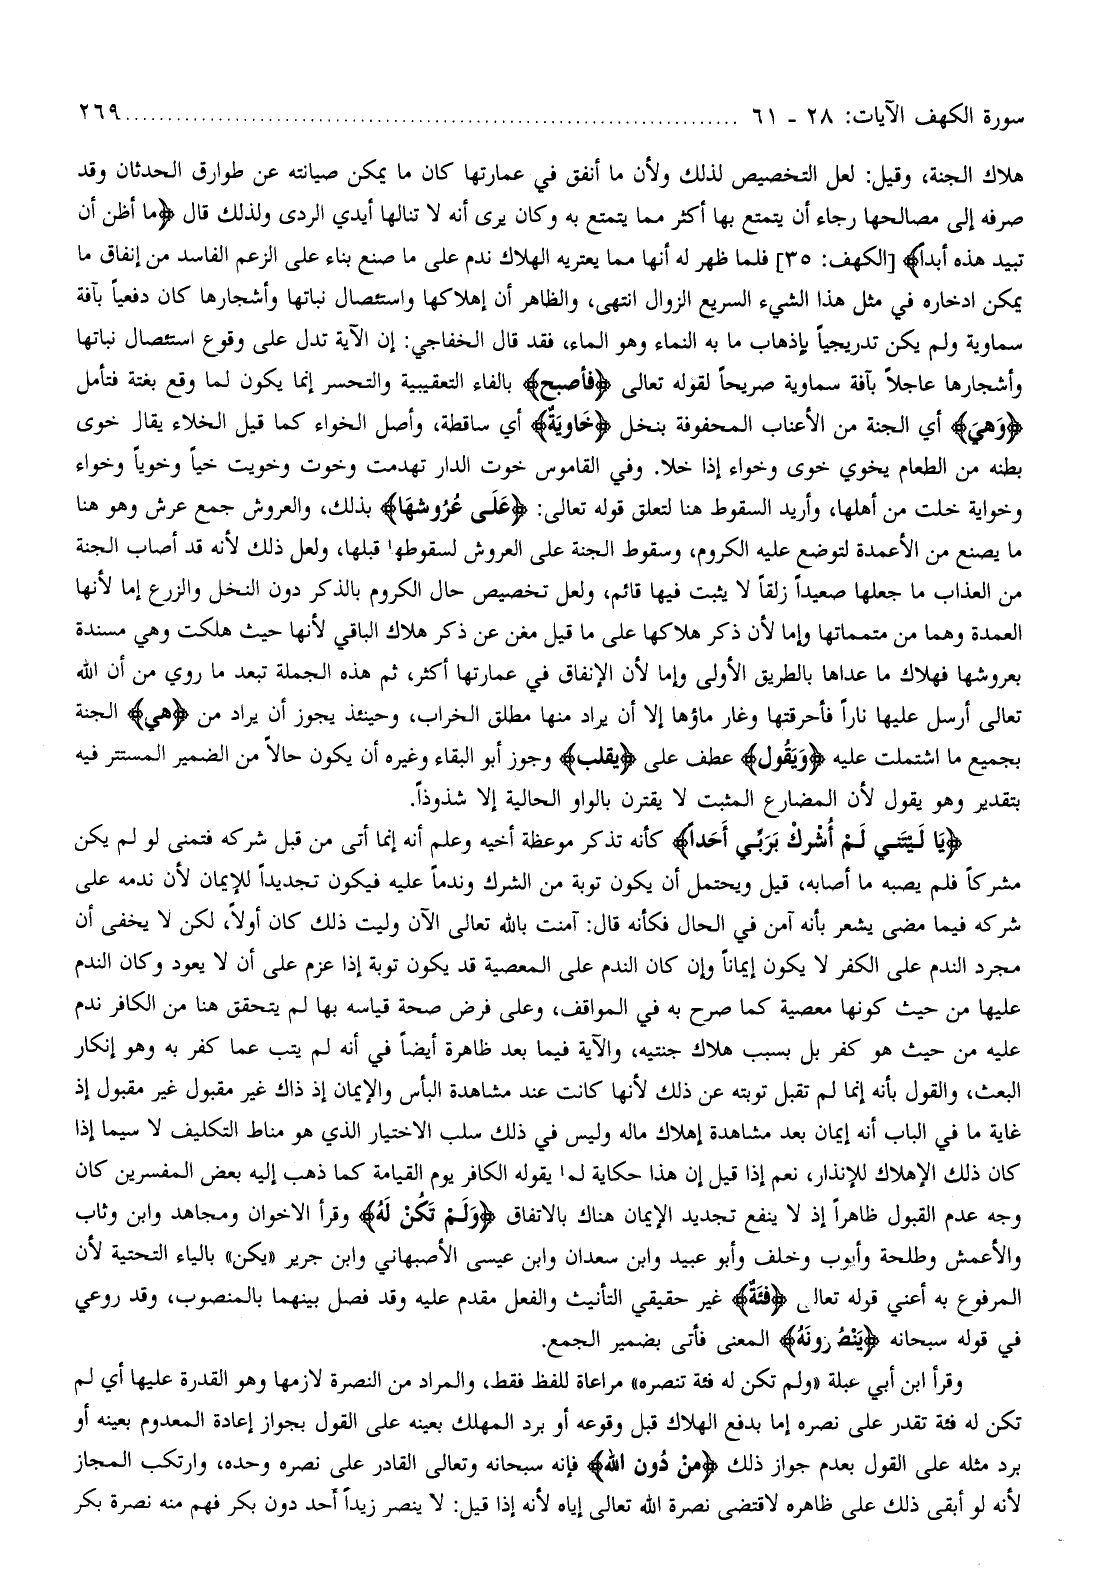 سورة الكهف الآيات: ٢٨ - ٦١ ........................................................................ ٢٦٩
هلاك الجنة، وقيل: لعل التخصيص لذلك ولأن ما أنفق في عمارتها كان ما يمكن صيانته عن طوارق الحدثان وقد
صرفه إلى مصالحها رجاء أن يتمتع بها أكثر مما يتمتع به وكان يرى أنه لا تنالها أيدي الردى ولذلك قال ﴿ما أظن أن
تبيد هذه أبداً﴾ [الكهف: ٣٥] فلما ظهر له أنها مما يعتريه الهلاك ندم على ما صنع بناء على الزعم الفاسد من إنفاق ما
يمكن ادخاره في مثل هذا الشيء السريع الزوال انتهى، والظاهر أن إهلاكها واستئصال نباتها وأشجارها كان دفعياً بآفة
سماوية ولم يكن تدريجياً بإذهاب ما به النماء وهو الماء، فقد قال الخفاجي: إن الآية تدل على وقوع استئصال نباتها
وأشجارها عاجلاً بآفة سماوية صريحاً لقوله تعالى ﴿فأصبح﴾ بالفاء التعقيبية والتحسر إنما يكون لما وقع بغتة فتأمل
﴿وَهيَ﴾ أي الجنة من الأعناب المحفوفة بنخل ﴿خَاويَةٌ﴾ أي ساقطة، وأصل الخواء كما قيل الخلاء يقال خوى
بطنه من الطعام يخوي خوى وخواء إذا خلا. وفي القاموس خوت الدار تهدمت وخوت وخويت خياً وخوياً وخواء
وخواية خلت من أهلها، وأريد السقوط هنا لتعلق قوله تعالى: ﴿عَلَى عُرُوشهَا﴾ بذلك، والعروش جمع عرش وهو هنا
ما يصنع من الأعمدة لتوضع عليه الكروم، وسقوط الجنة على العروش لسقوطها قبلها، ولعل ذلك لأنه قد أصاب الجنة
من العذاب ما جعلها صعيداً زلقاً لا يثبت فيها قائم، ولعل تخصيص حال الكروم بالذكر دون النخل والزرع إما لأنها
العمدة وهما من متمماتها وإما لأن ذكر هلاكها على ما قيل مغن عن ذكر هلاك الباقي لأنها حيث هلكت وهي مسندة
بعروشها فهلاك ما عداها بالطريق الأولى وإما لأن الإنفاق في عمارتها أكثر، ثم هذه الجملة تبعد ما روي من أن الله
تعالى أرسل عليها ناراً فأحرقتها وغار ماؤها إلا أن يراد منها مطلق الخراب، وحينئذ يجوز أن يراد من ﴿هي﴾ الجنة
بجميع ما اشتملت عليه ﴿وَيَقُول﴾ عطف على ﴿يقلب﴾ وجوز أبو البقاء وغيره أن يكون حالاً من الضمير المستتر فيه
بتقدير وهو يقول لأن المضارع المثبت لا يقترن بالواو الحالية إلا شذوذاً.
﴿يَا لَيْتَني لَمْ أُشْركْ بَربِّي أَحَداً﴾ كأنه تذكر موعظة أخيه وعلم أنه إنما أتى من قبل شركه فتمنى لو لم يكن
مشركاً فلم يصبه ما أصابه، قيل ويحتمل أن يكون توبة من الشرك وندماً عليه فيكون تجديداً للإيمان لأن ندمه على
شركه فيما مضى يشعر بأنه آمن في الحال فكأنه قال: آمنت بالله تعالى الآن وليت ذلك كان أولاً، لكن لا يخفى أن
مجرد الندم على الكفر لا يكون إيماناً وإن كان الندم على المعصية قد يكون توبة إذا عزم على أن لا يعود وكان الندم
عليها من حيث كونها معصية كما صرح به في المواقف، وعلى فرض صحة قياسه بها لم يتحقق هنا من الكافر ندم
عليه من حيث هو كفر بل بسبب هلاك جنتيه، والآية فيما بعد ظاهرة أيضاً في أنه لم يتب عما كفر به وهو إنكار
البعث، والقول بأنه إنما لم تقبل توبته عن ذلك لأنها كانت عند مشاهدة البأس والإيمان إذ ذاك غير مقبول غير مقبول إذ
غاية ما في الباب أنه إيمان بعد مشاهدة إهلاك ماله وليس في ذلك سلب الاختيار الذي هو مناط التكليف لا سيما إذا
كان ذلك الإهلاك للإنذار، نعم إذا قيل إن هذا حكاية لما يقوله الكافر يوم القيامة كما ذهب إليه بعض المفسرين كان
وجه عدم القبول ظاهراً إذ لا ينفع تجديد الإيمان هناك بالاتفاق ﴿وَلَمْ تَكُنْ لَهُ﴾ وقرأ الاخوان ومجاهد وابن وثاب
والأعمش وطلحة وأيوب وخلف وأبو عبيد وابن سعدان وابن عيسى الأصبهاني وابن جرير «يكن» بالياء التحتية لأن
المرفوع به أعني قوله تعالى ﴿فئَةٌ﴾ غير حقيقي التأنيث والفعل مقدم عليه وقد فصل بينهما بالمنصوب، وقد روعي
في قوله سبحانه ﴿يَنْصُرونَهُ﴾ المعنى فأتى بضمير الجمع.
وقرأ ابن أبي عبلة «ولم تكن له فئة تنصره» مراعاة للفظ فقط، والمراد من النصرة لازمها وهو القدرة عليها أي لم
تكن له فئة تقدر على نصره إما بدفع الهلاك قبل وقوعه أو برد المهلك بعينه على القول بجواز إعادة المعدوم بعينه أو
برد مثله على القول بعدم جواز ذلك ﴿منْ دُون الله﴾ فإنه سبحانه وتعالى القادر على نصره وحده، وارتكب المجاز
لأنه لو أبقى ذلك على ظاهره لاقتضى نصرة الله تعالى إياه لأنه إذا قيل: لا ينصر زيداً أحد دون بكر فهم منه نصرة بكر